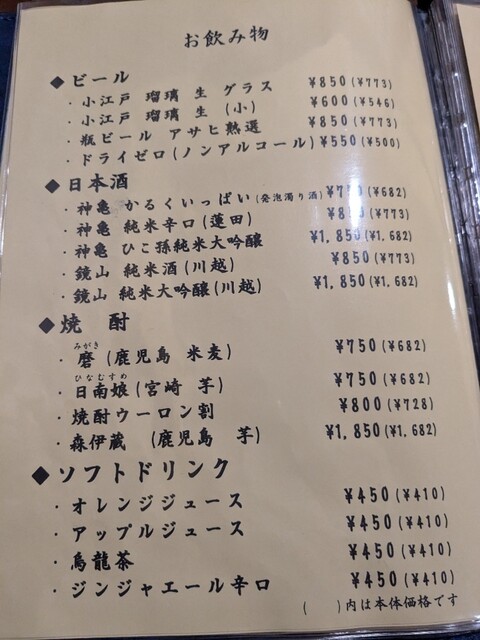 お飲み物
◆ビール
・小江戸 瑠璃 生 グラス ¥850(¥773)
・小江戸 瑠璃 生 (小) ¥600(¥546)
・瓶ビール アサヒ熟選 ¥850(¥773)
・ドライゼロ(ノンアルコール) ¥550(¥500)
◆日本酒
・神亀 かるくいっぱい(発泡濁り酒) ¥750(¥682)
・神亀 純米辛口(蓮田) ¥850(¥773)
・神亀 ひこ孫純米大吟醸 ¥1,850(¥1,682)
・鏡山 純米酒(川越) ¥850(¥773)
・鏡山 純米大吟醸(川越) ¥1,850(¥1,682)
◆焼 酎
みがき
・磨(鹿児島 米麦) ¥750(¥682)
ひなむすめ
・日南娘(宮崎 芋) ¥750(¥682)
・焼酎ウーロン割 ¥800(¥728)
・森伊蔵 (鹿児島 芋) ¥1,850(¥1,682)
◆ソフトドリンク
・オレンジジュース ¥450(¥410)
・アップルジュース ¥450(¥410)
・烏龍茶 ¥450(¥410)
・ジンジャエール辛口 ¥450(¥410)
( )内は本体価格です